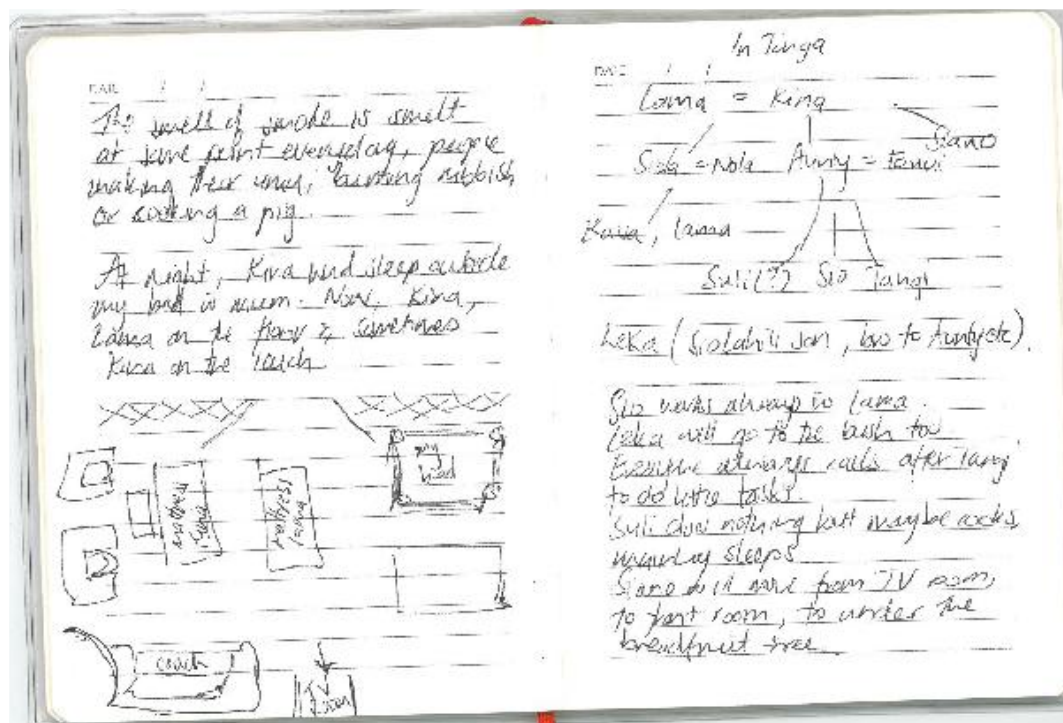 DATE / /
The smell of smoke is smelt
at some point everyday, people
making their umu, burning rubbish
or cooking a pig.
At night, Kina and sleep outside
my bed is room. Now, Kina,
Lama on the floor & sometimes
Kava on the couch
my bed
mattress
mattress Lama
couch
Door
In Tonga
DATE / /
Lama = Kina
Siano
Siob = Nola Aunty = Tanvi
Kava, Lama
Suli(?) Sio Tangi
Leka (Siotahili son, bro to Aunty etc).
Sio works always to Lama.
Leka will go to the bush too
Everyone always calls after Tangi
to do little tasks.
Suli does nothing but maybe cooks,
mainly sleeps
Siano will move from TV room,
to front room, to under the
breadfruit tree